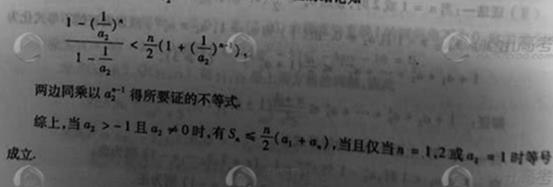 $\frac{1-(\frac{1}{a_2})^n}{1-\frac{1}{a_2}} < \frac{n}{2}(1+(\frac{1}{a_2})^{n-1}),$
两边同乘以 $a_2^{n-1}$ 得所要证的不等式.
综上,当 $a_2 > -1$ 且 $a_2 \neq 0$ 时,有 $S_n \leq \frac{n}{2}(a_1 + a_n)$,当且仅当 $n = 1,2$ 或 $a_2 = 1$ 时等号
成立.